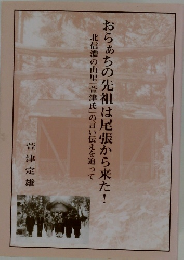 おらぁちの先祖は尾張から来た！
北信濃の山里「菅津氏」の言い伝えを追って
菅津定雄